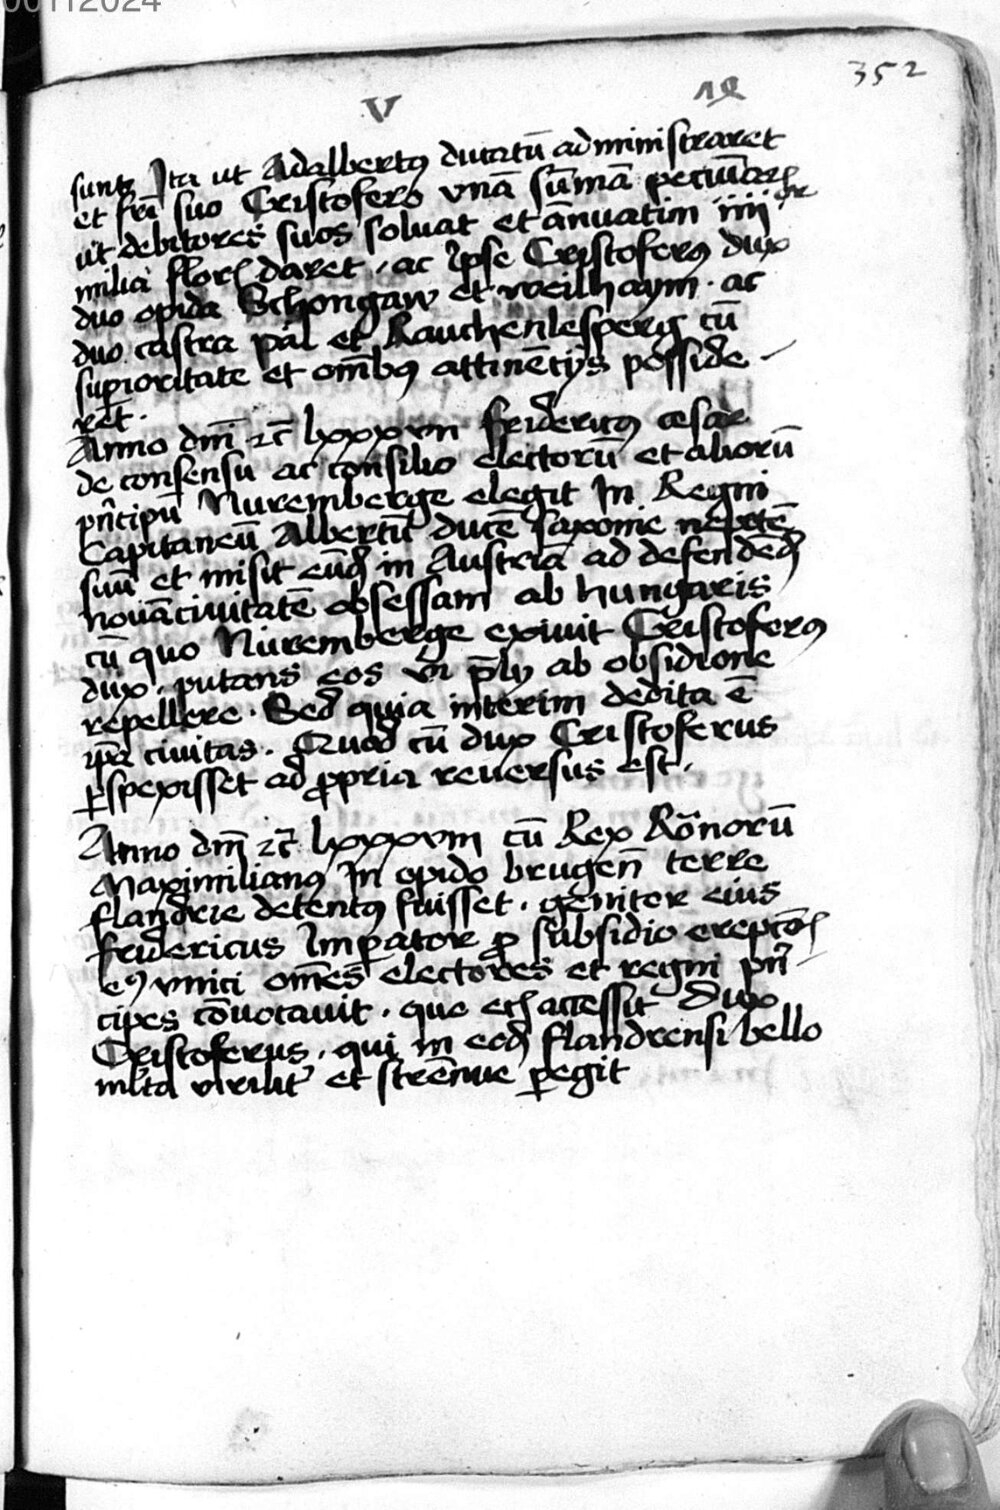 00112024
352
V
sunt Ita ut Adalbertꝯ ducatū administraret
et fri̅ suo Cristofero vnā su̅mā pecuniaꝝ
ut debitores suos soluat et a̅nuatim iiij
milia floꝝ daret, ac ipse Cristoferꝯ dux
duo opida Schongaw et weilhaym. ac
duo castra päl et Rauchenlesperg cū
supioritate et om̅ibꝯ attine̅tijs posside
ret.
Anno dm̅i ⁊c̅ lxxxvii fridericꝯ cesar
de consensu ac consilio electorū et aliorū
pn̅cipū Nuremberge elegit In Regni
Capitaneū Albertū ducē saxonie nepotē
suū et misit eūdē in Austria ad defendēdā
nouā ciuitatē obsessam ab hungaris
cū quo Nuremberge exiuit Cristoferꝯ
dux, putans eos vi p̅lij ab obsidione
repellere. Sed quia interim dedita ē
ip̅a ciuitas. Quod cū dux Cristoferus
ꝑspexisset ad ꝓpria reuersus est.
Anno dm̅i ⁊c̅ lxxxviii cū Rex Ro̅norū
Maximilianꝯ In opido brugen̅ terre
flandrie detentꝯ fuisset. genitor eius
fridericus Imꝑator ꝓ subsidio ereptōīs
eꝯ vnici om̅es electores et regni pn̅
cipes co̅uocauit. que eciā accessit Dux
Cristoferus, qui in eodē flandrensi bello
ml̅ta virilit̉ et stre̅nue ꝑegit